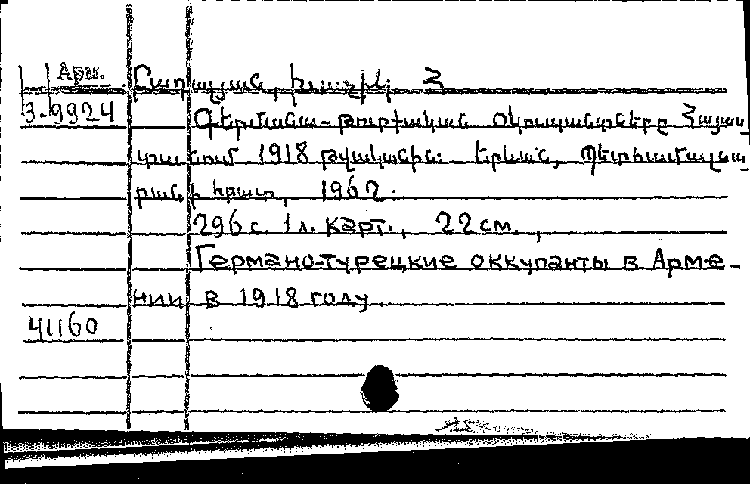 Арм.
3-9924
Բադալյան, Խաչիկ Հ
Գերմանա-թուրքական օկուպանտները Հայաս
տանում 1918 թվականին: Երևան, Պետհամալսա
րանի հրատ., 1962.
296 с. 1 л. карт., 22 см.,
Германо-турецкие оккупанты в Арме-
нии в 1918 году.
41160